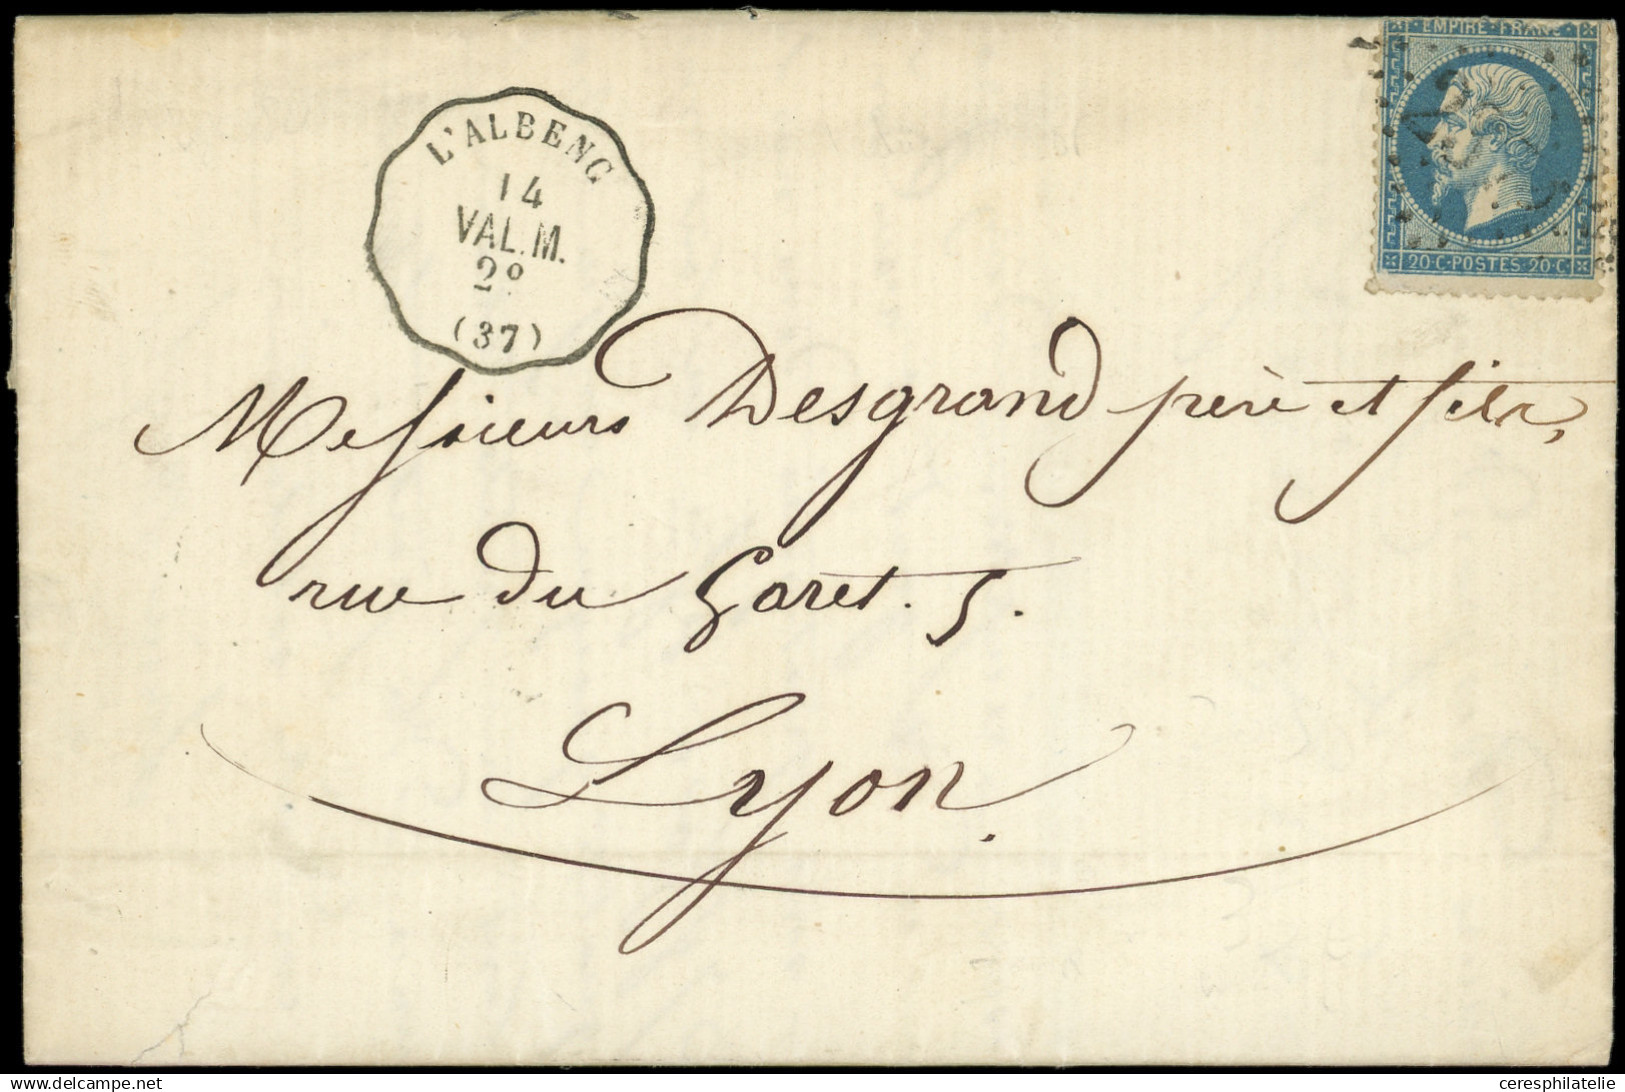 L'ALBENC
14
VAL.M.
2°
(37)
EMPIRE·FRANC
20·C·POSTES·20·C
Messieurs Desgrand père et fils,
rue du Garet. 5.
Lyon.
www.delcampe.net
ceresphilatelie